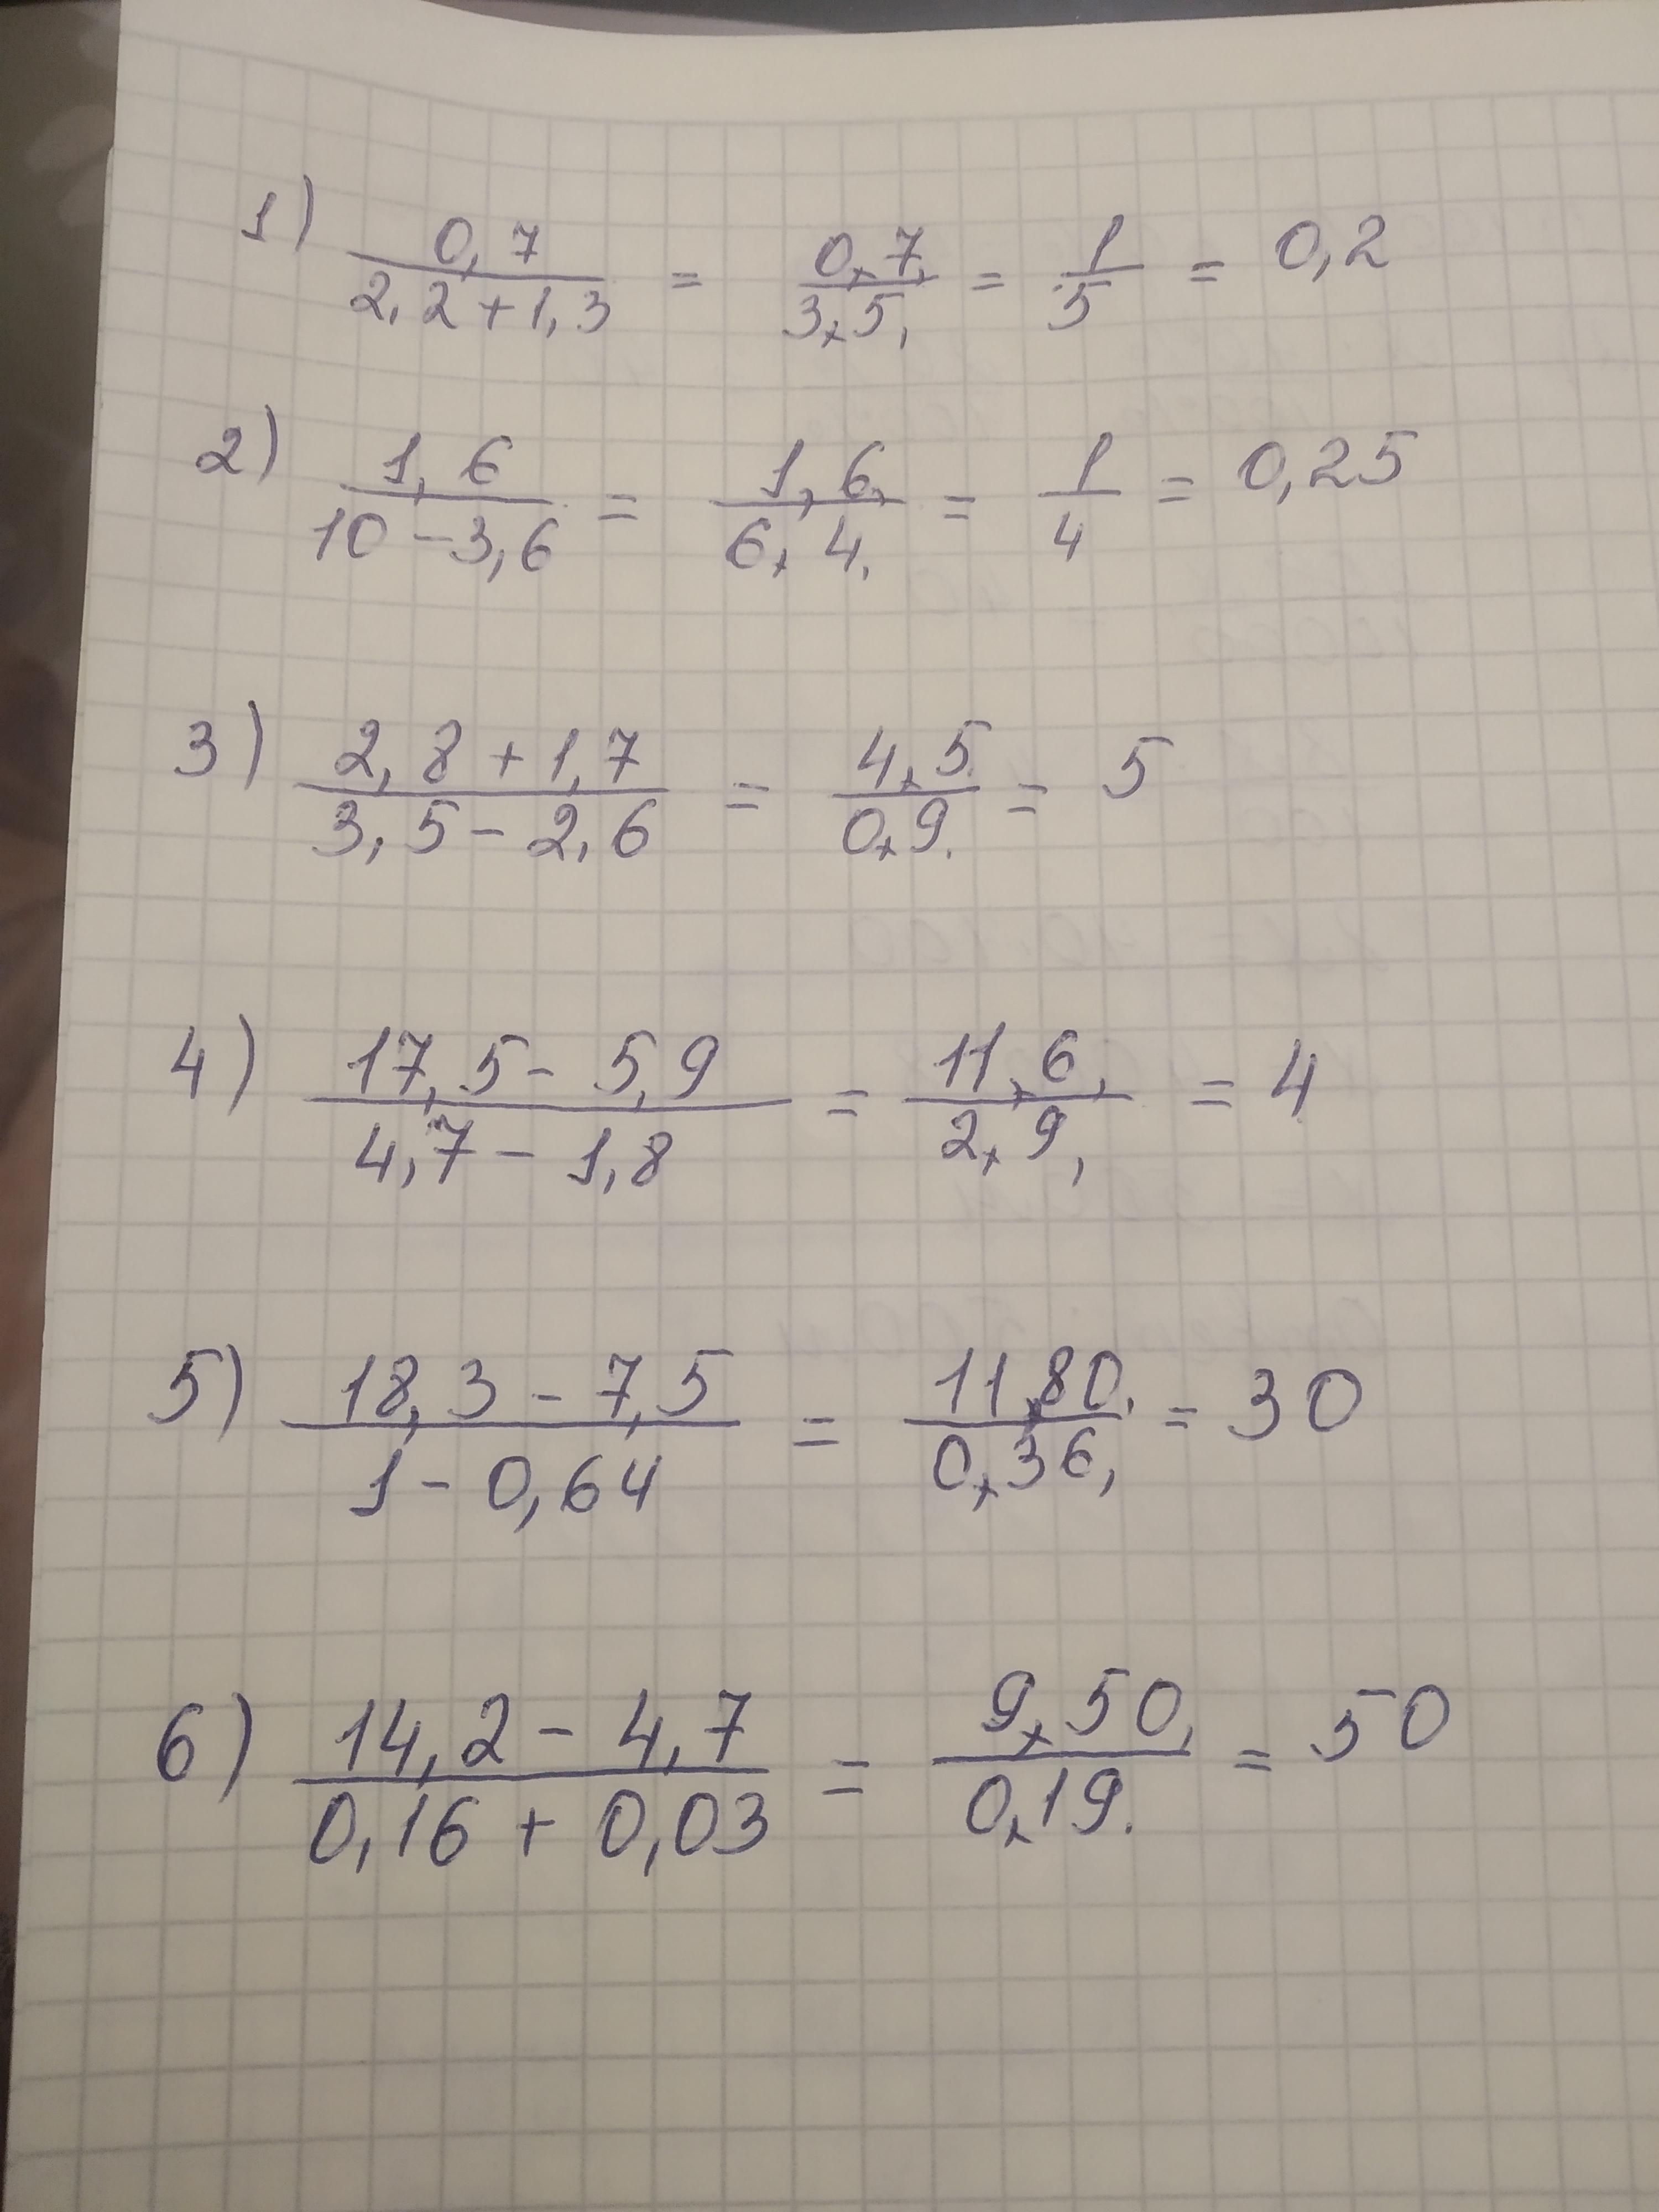 1) 0,7 / 2,2 + 1,3 = 0,7, / 3,5, = 1/5 = 0,2
2) 1,6 / 10 - 3,6 = 1,6, / 6,4, = 1/4 = 0,25
3) 2,8 + 1,7 / 3,5 - 2,6 = 4,5, / 0,9, = 5
4) 17,5 - 5,9 / 4,7 - 1,8 = 11,6, / 2,9, = 4
5) 18,3 - 7,5 / 1 - 0,64 = 11,80, / 0,36, = 30
6) 14,2 - 4,7 / 0,16 + 0,03 = 9,50, / 0,19, = 50